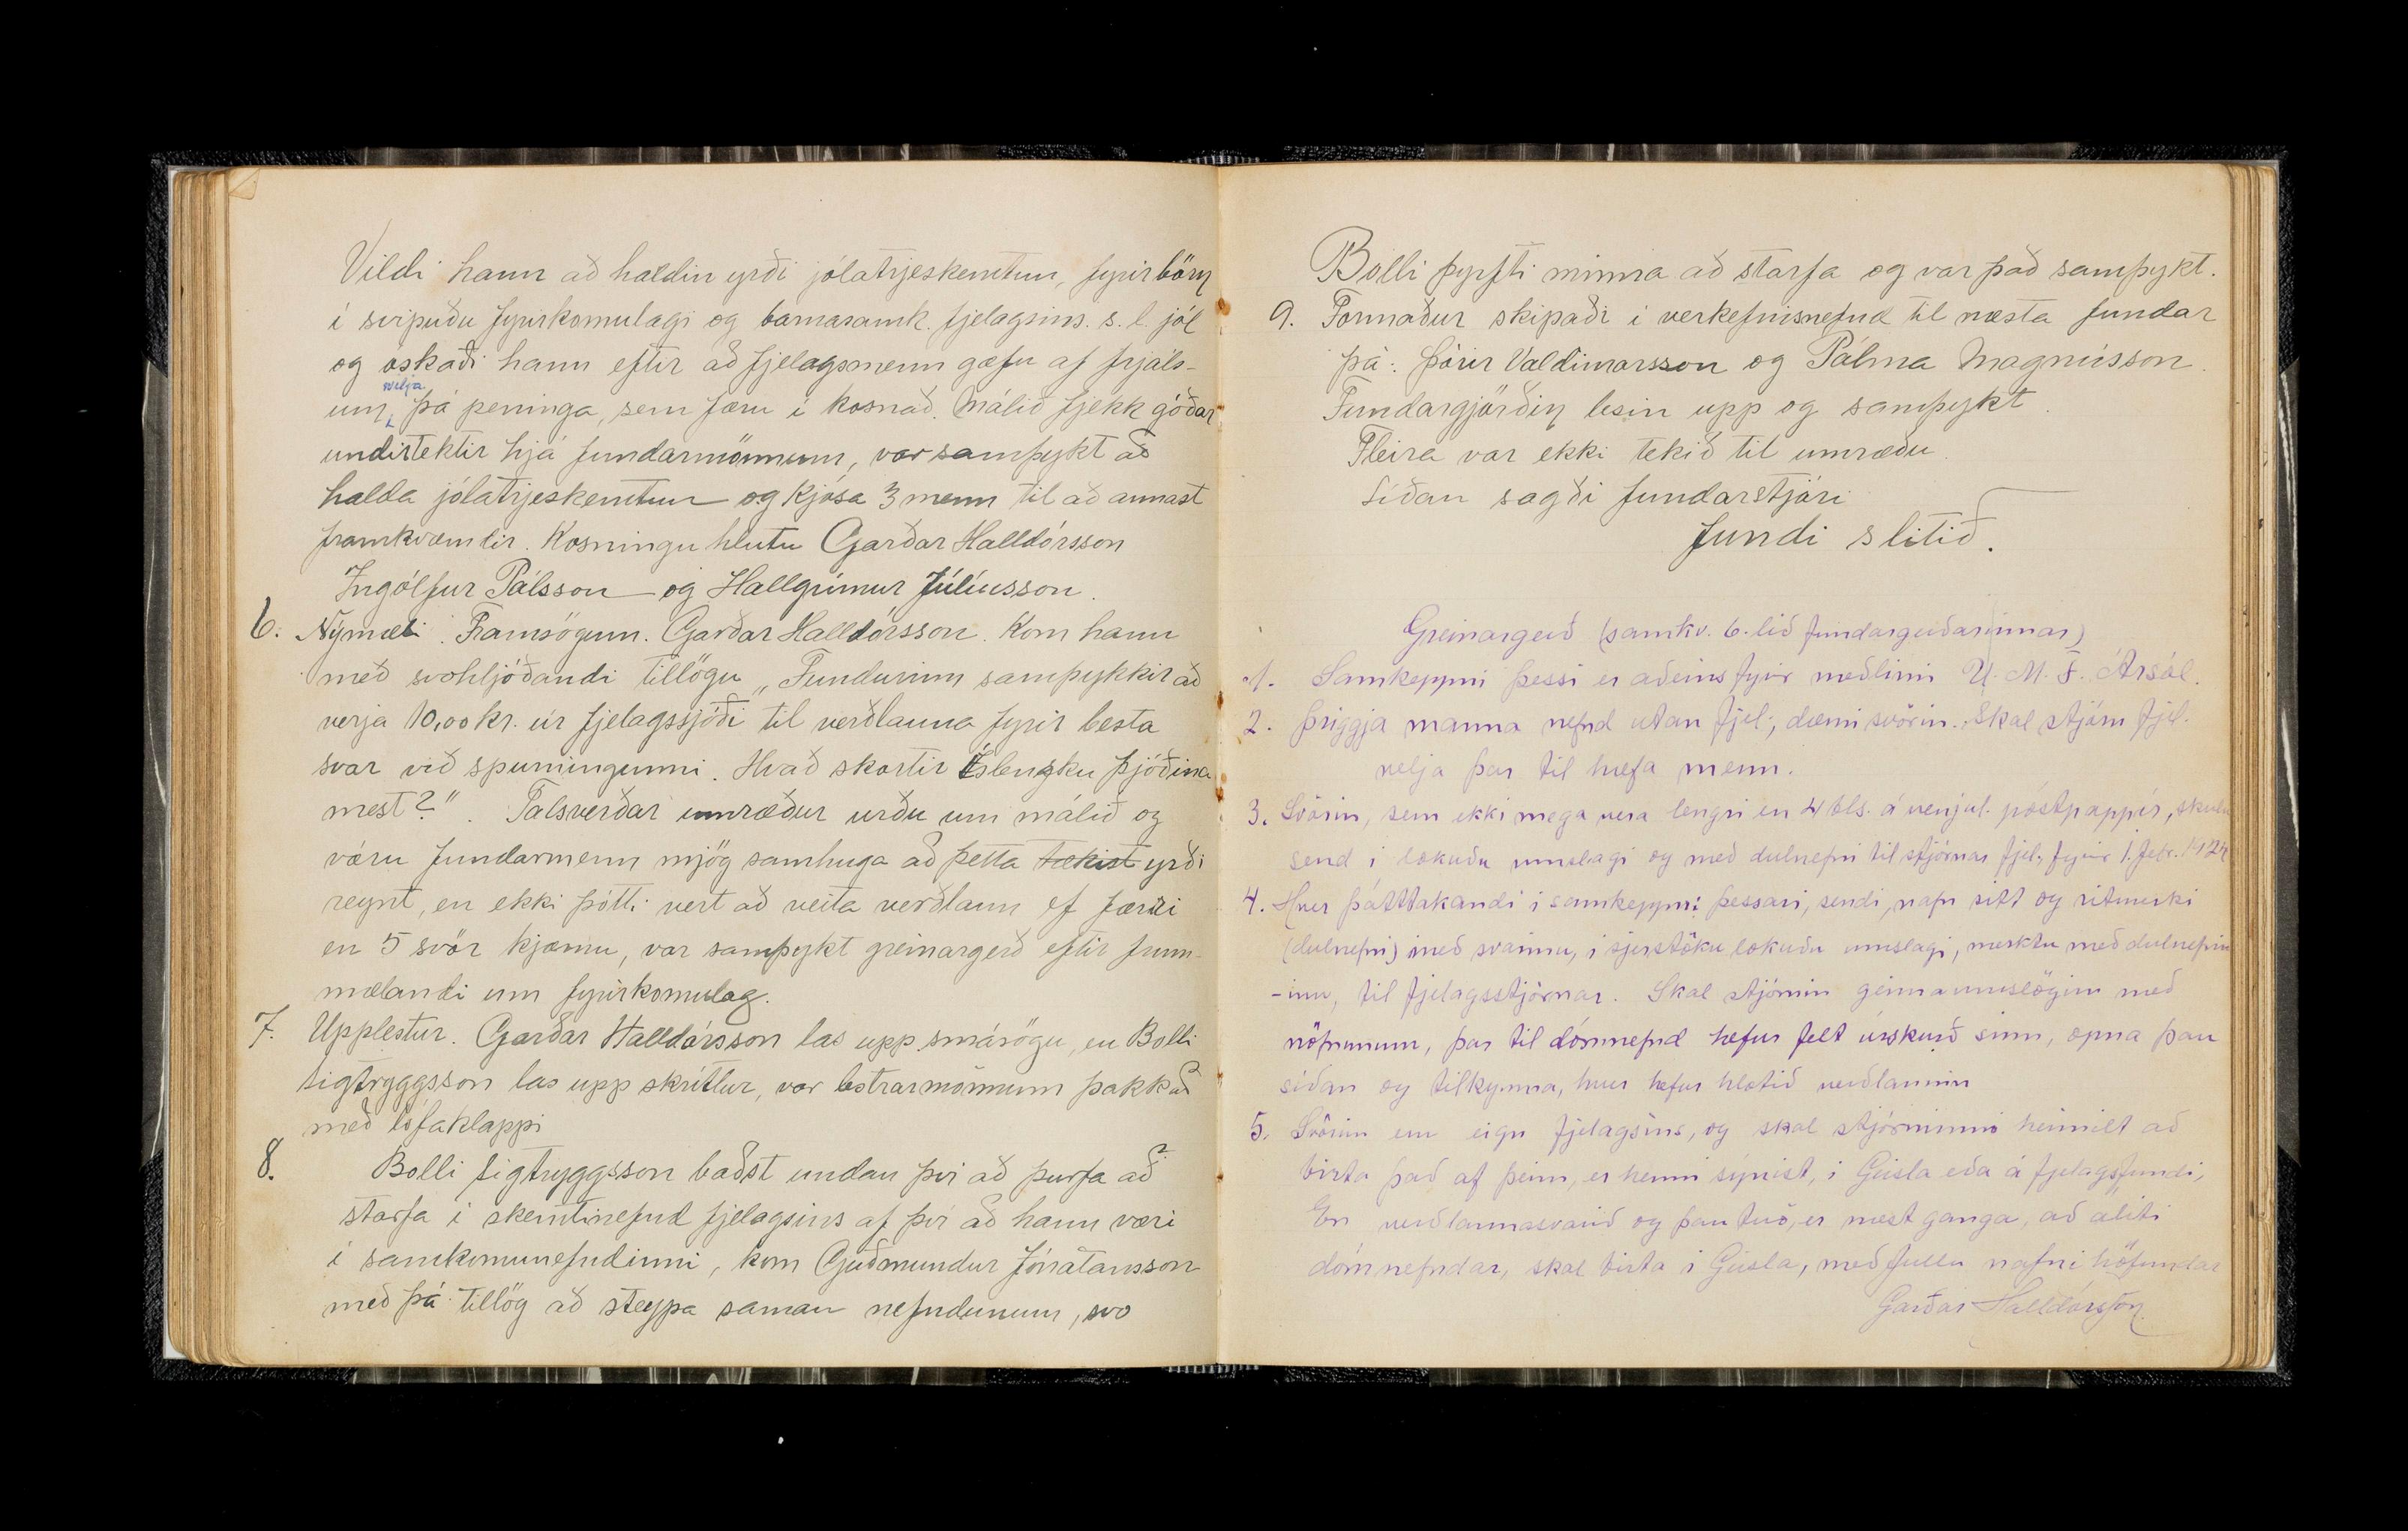 Vildi hann að haldin yrði jólatrjeskemtun, fyrir börn
í svipuðu fyrirkomulagi og barnasamk. fjelagsins. s. l. jól
og óskaði hann eftir að fjelagsmenn gæfu af frjáls-
um vilja þá peninga, sem færu í kosnað. Málið fjekk góðar
undirtektir hjá fundarmönnum, var samþykt að
halda jólatrjeskemtun og kjósa 3 menn til að annast
framkvæmdir. Kosningu hlutu Garðar Halldórsson
Ingólfur Pálsson og Hallgrímur Júlíusson.
6. Nýmæli. Framsögum. Garðar Halldórsson. Kom hann
með svohljóðandi tillögu „Fundurinn samþykkir að
verja 10,00 kr. úr fjelagssjóði til verðlauna fyrir besta
svar við spurningunni. Hvað skortir Íslensku þjóðina
mest?". Talsverðar umræður urðu um málið og
væru fundarmenn mjög samhuga að þetta tækist yrði
reynt, en ekki þótti vert að veita verðlaun ef færri
en 5 svör kjæmu, var samþykt greinargerð eftir frum-
mælandi um fyrirkomulag.
7. Upplestur. Garðar Halldórsson las upp smásögu, en Bolli
Sigtryggsson las upp skrítlur, var lestrarmönnum þakkað
með lófaklappi
8. Bolli Sigtryggsson baðst undan því að þurfa að
starfa í skemtinefnd fjelagsins af því að hann væri
í samkomunefndinni, kom Guðmundur Jónatansson
með þá tillög að steypa saman nefndunum, svo
Bolli þyrfti minna að starfa og var það samþykt.
9. Formaður skipaði í verkefnisnefnd til næsta fundar
þá: Þórir Valdimarsson og Pálma Magnússon.
Fundargjörðin lesin upp og samþykt.
Fleira var ekki tekið til umræðu.
Síðan sagði fundarstjóri
fundi slitið.
Greinargerð (samkv. 6. lið fundargerðarinnar)
1. Samkeppni þessi er aðeins fyrir meðlimi U. M. F. Ársól.
2. Þriggja manna nefnd utan fjel., dæmi svörin. Skal stjórn fjel.
velja þar til hæfa menn.
3. Svörin, sem ekki mega vera lengri en 4 bls. á venjul. póstpappír, skulu
send í lokuðu umslagi og með dulnefni til stjórnar fjel. fyrir 1. febr. 1924
4. Hver þátttakandi í samkeppni þessari, sendi, nafn sitt og ritmerki
(dulnefni) með svarinu, í sjerstöku lokuðu umslagi, merktu með dulnefn-
-inu, til fjelagsstjórnar. Skal stjórnin geima umslögin með
nöfnunum, þar til dómnefnd hefur felt úrskurð sinn, opna þau
síðan og tilkynna, hver hefur hlotið verðlaunin
5. Svörin eru eign fjelagsins, og skal stjórninni heimilt að
birta það af þeim, er henni sýnist, í Geisla eða á fjelagsfundi,
En verðlaunasvarið og þau tvö, er næst ganga, að áliti
dómnefndar, skal birta í Geisla, með fullu nafni höfundar
Garðar Halldórsson